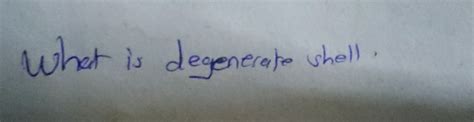 What is degenerate shell.